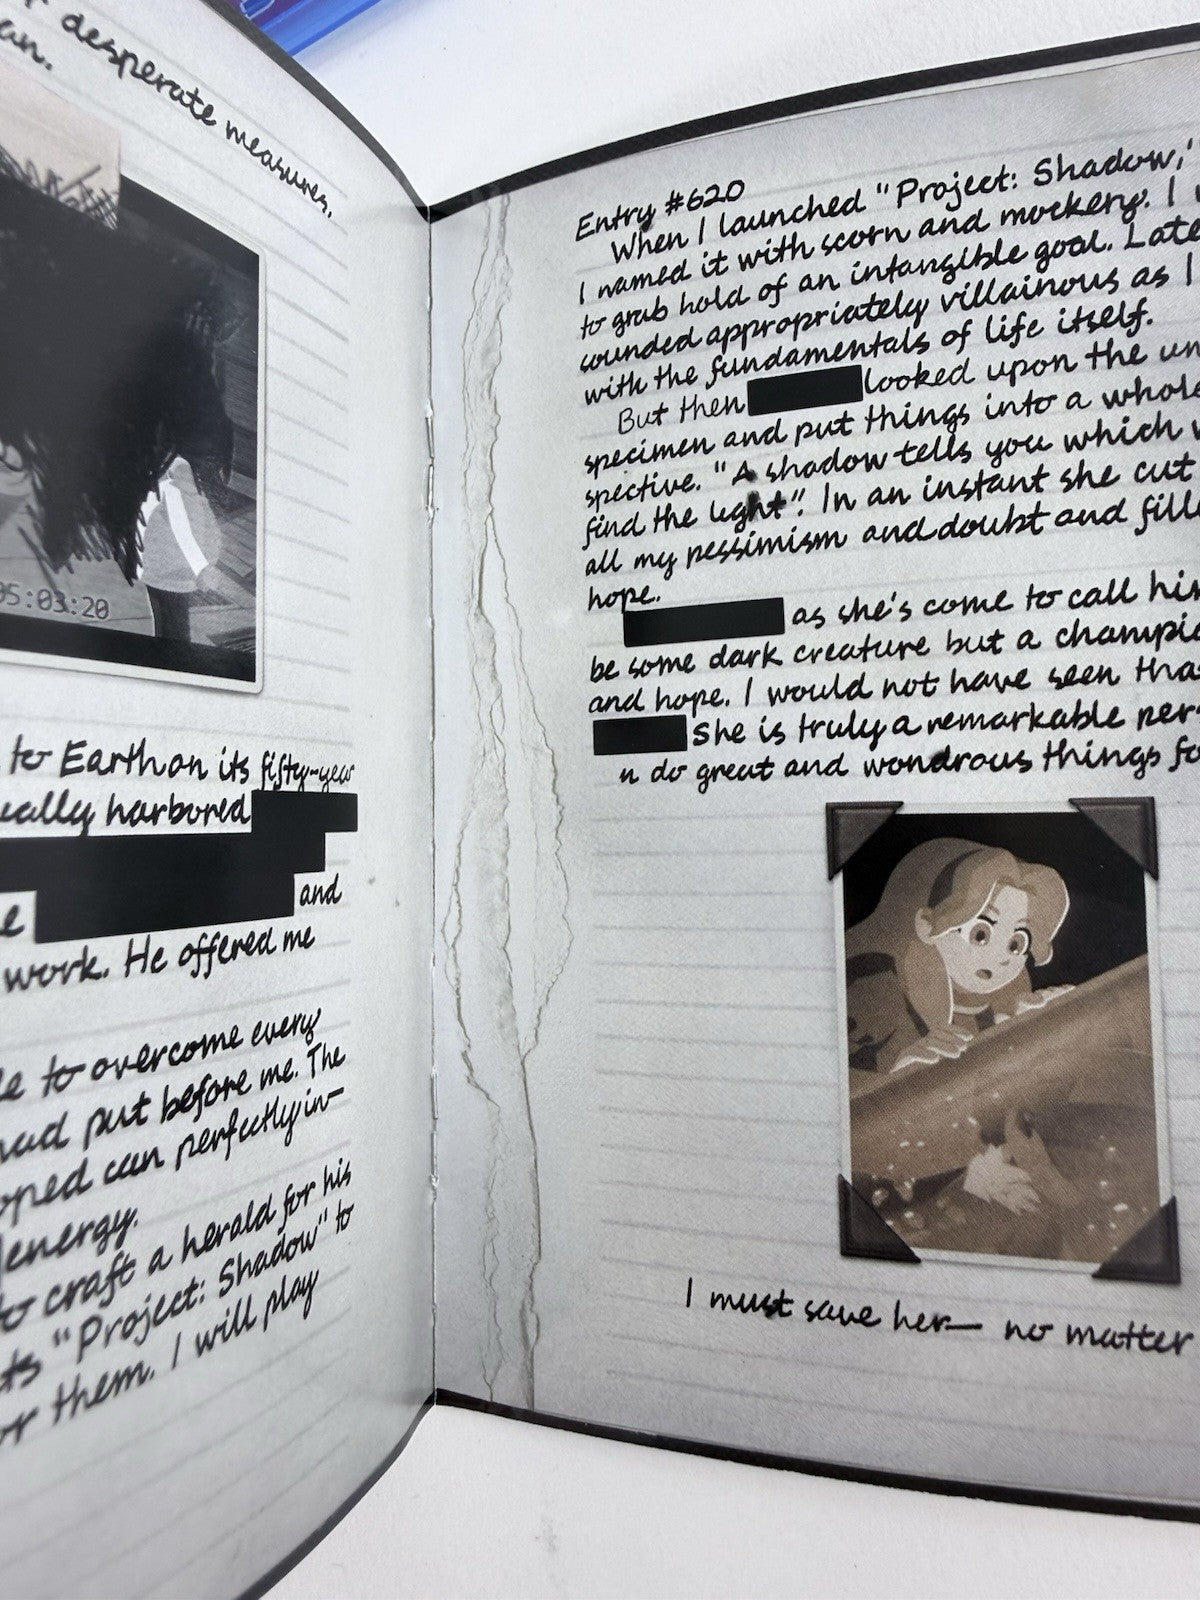 desperate measures.
an.
05:03:20
to Earth on its fifty-year
ually harbored
e
and
work. He offered me
le to overcome every
had put before me. The
oped can perfectly in-
energy.
to craft a herald for his
ts "Project: Shadow" to
or them. I will play
Entry #620
When I launched "Project: Shadow,"
I named it with scorn and mockery. I
to grab hold of an intangible goal. Late
sounded appropriately villainous as I
with the fundamentals of life itself.
But then looked upon the un
specimen and put things into a whole
spective. "A shadow tells you which w
find the light". In an instant she cut
all my pessimism and doubt and fille
hope.
as she's come to call his
be some dark creature but a champio
and hope. I would not have seen tha
She is truly a remarkable per-
n do great and wondrous things fo
I must save her— no matter